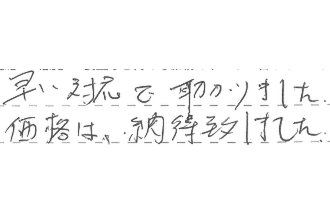 早い対応で助かりました。
価格は、納得致しました。